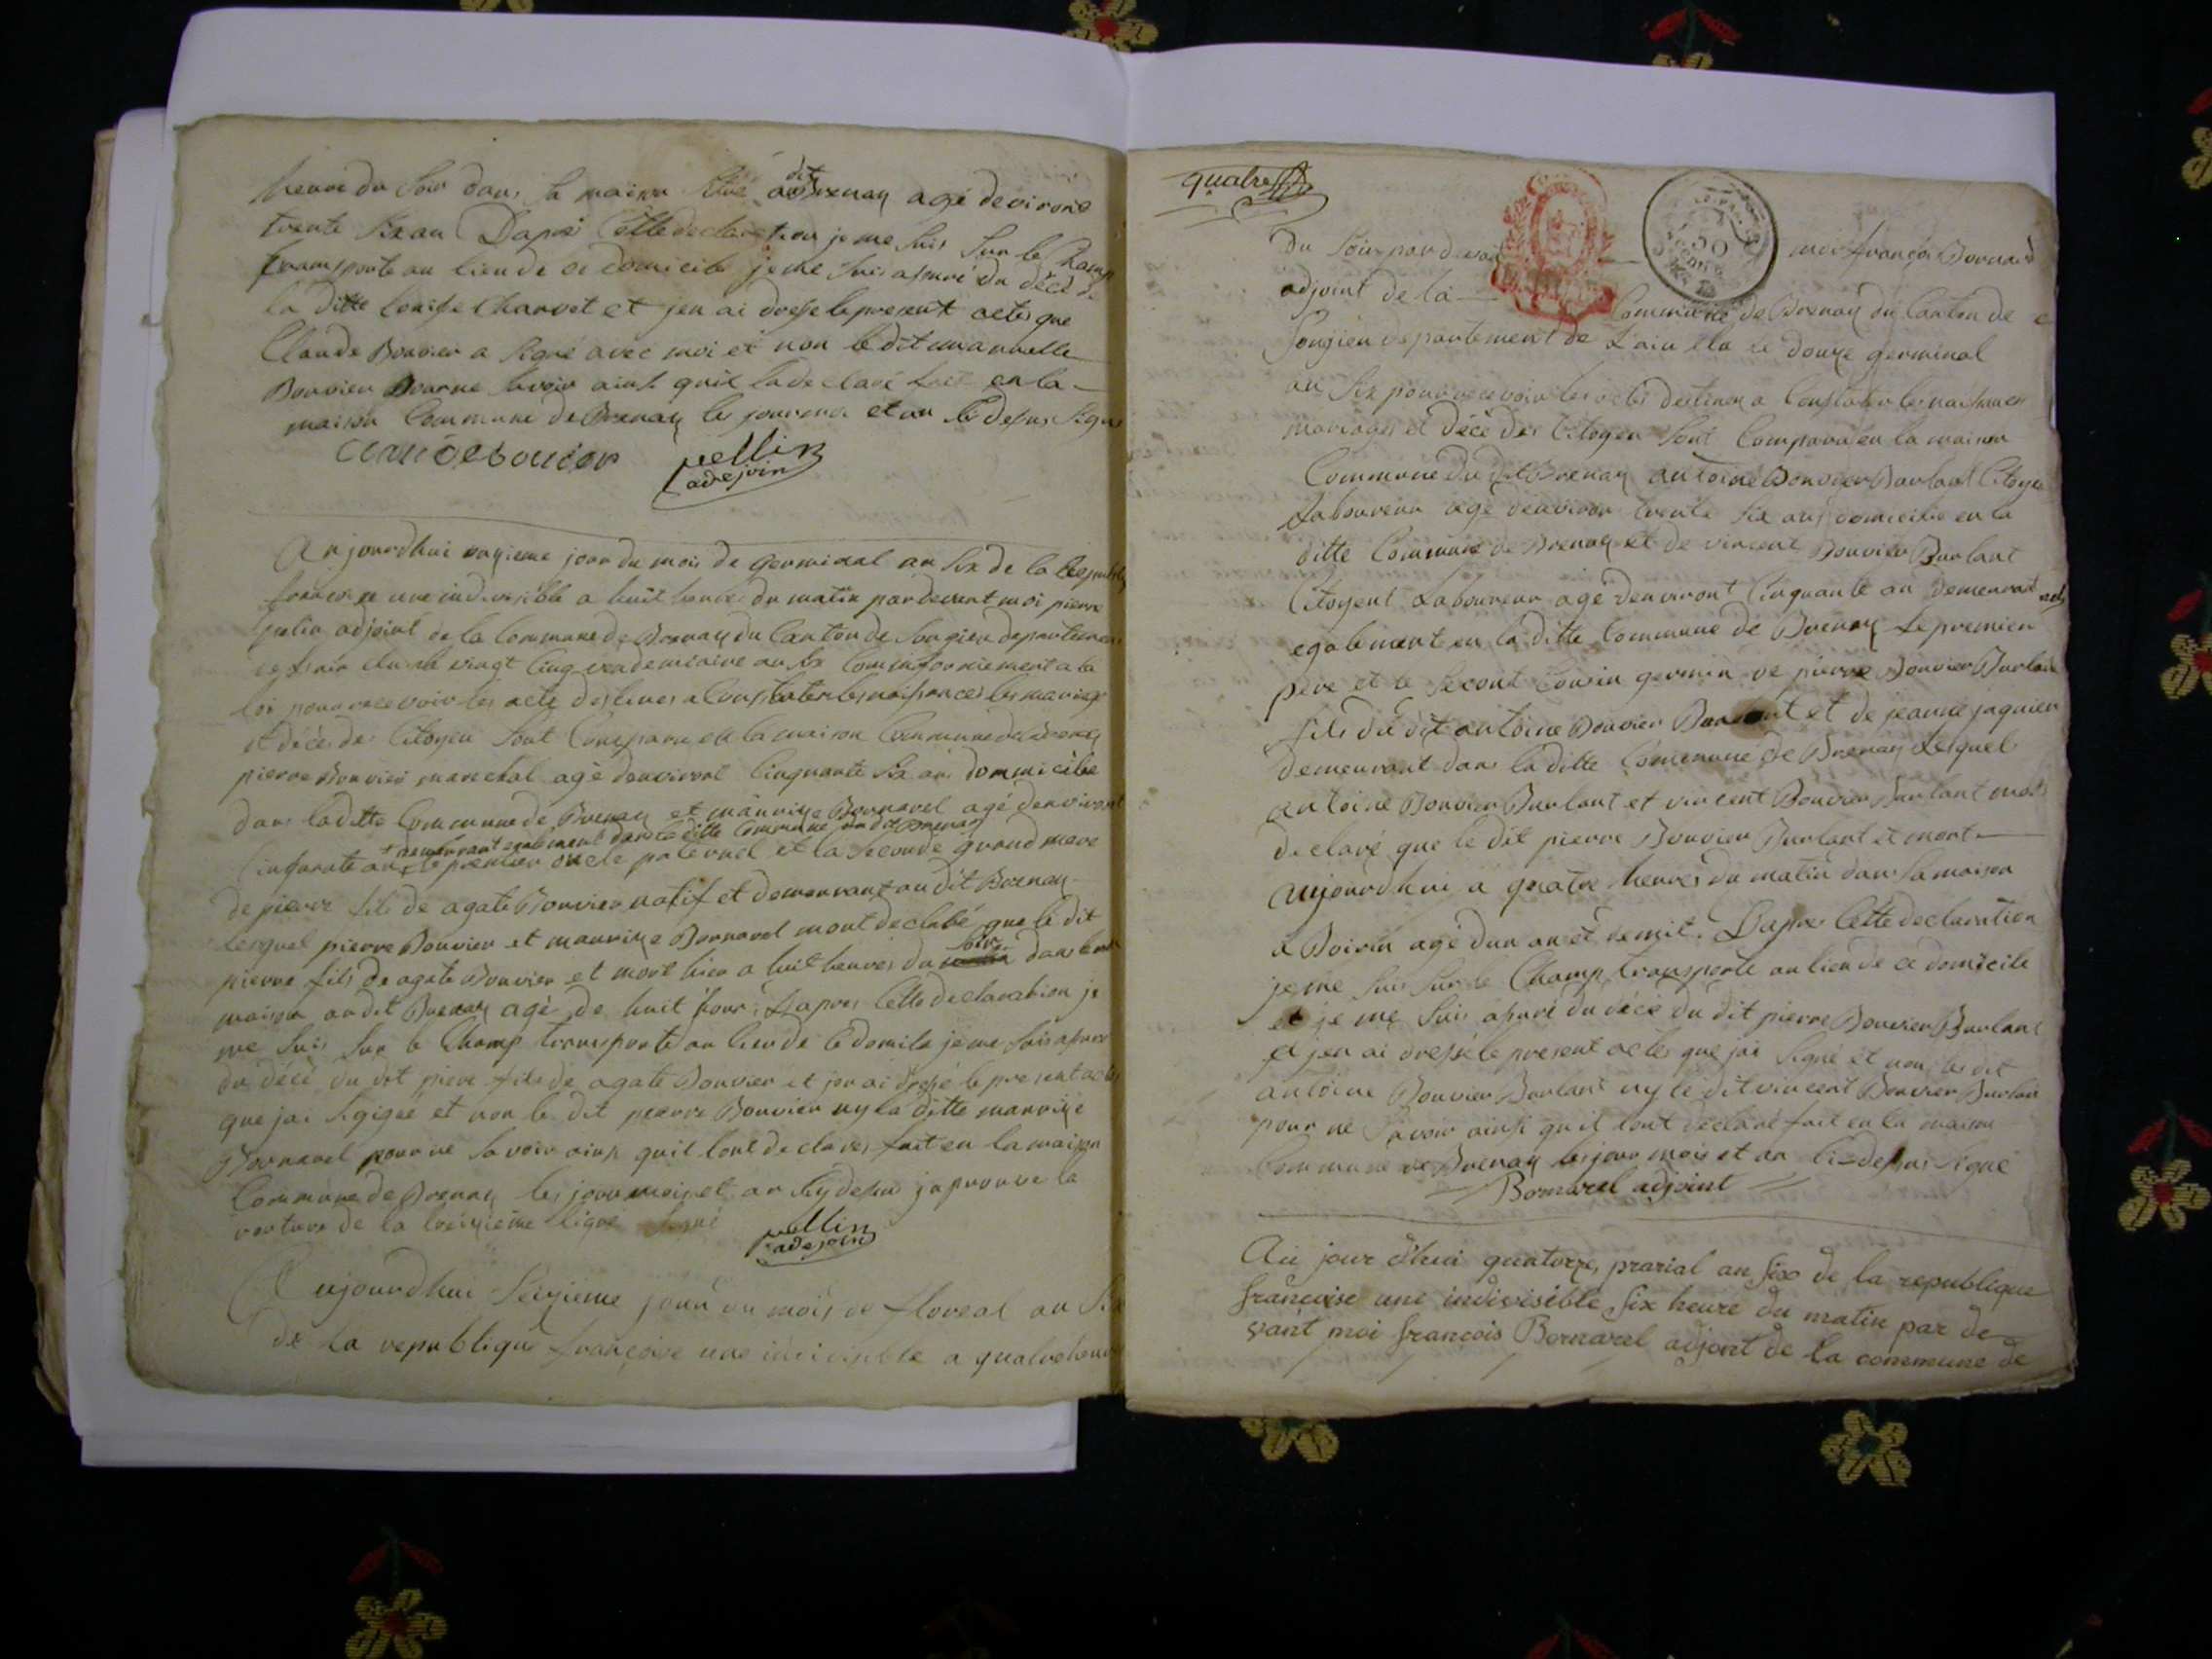 heure du soir dans sa maison situé au dit Brenay agé devirons
trente six an Dapré Cette declaration je me suis sur le Champ
transporté au lieu de ce domicile je me suis assuré du décé de
la ditte Louise Charvet et jen ai dressé le present actes que
Claude Bouvier a signé avec moi et non le dit
Bouvier savoir ainsi quil la declaré fait en la
maison Commune de Brenay les jour mois et an si desus signé
claude bouvier pellin
adejoin
Aujourdhui onzieme jour du mois de germinal an six de la Republiq
francoise une indivisible a huit heures du matin pardevent moi pierre
pelin adjoint de la Commune de Brenay du Canton de Songieu departement
de lain élu le vingt cinq vendemiaire an six a la
loi pour recevoir les acte destines a Constater les naissances les mariages
et décés des Citoyen sont Comparu en la maison Commune de Brenay
pierre Bouvier marechal agé denviront Cinquante six an dommicilie
dans laditte Commune de Brenay et maurize Bornarel agé denviront
+ demeurant egalement dans la ditte Commune du dit Brenay
Cinquante an + le premier oncle paternel et la seconde grand mere
de pierre fils de agate Bouvier natif et demeurant au dit Brenay
lesquel pierre Bouvier et maurize Bornarel mont declaré que le dit
pierre fils de agate Bouvier et mort hier a huit heures du soir dans la
maison au dit Brenay agé de huit jours Dapres Cette declaration je
me suis sur le Champ transporté au lieu de ce domicile je me suis assuré
du décé du dit piere fils de agate Bouvier et jen ai dressé le present actes
que jai sigigné et non le dit pierre Bouvier ny la ditte maurize
Bornarel pour ne savoir ainsi quil lont declarés fait en la maison
Commune de Brenay les jour mois et an sy desus japrouve la
roture de la treizieme ligne signé
pellin
adejoin
Aujourdhui seizieme jour du mois de floreal an six
de la republique françoise une indivisible a quatre heure
quatre
du soir pardevan moi françoi Bornarel
adjoint de la Commune de Brenay du Canton de
Songieu departement de Lain élu le douze germinal
an six pour recevoir les actes destinez a Constater les naissances
mariages et décé des Citoyen sont Comparu en la maison
Commune du dit Brenay antoine Bouvier Burlant Citoyen
Laboureur agé denviron trente six ans domicilié en la
ditte Commune de Brenay et de vincent Bouvier Burlant
Citoyent Laboureur agé denviront Cinquante an demeurant
egalement en la ditte Commune de Brenay Le premier
pere et le second Cousin germin de pierre Bouvier Burlant
fils du dit antoine Bouvier Burlant et de jeanne jaquier
demeurant dans la ditte Commune de Brenay Lesquel
antoine Bouvier Burlant et vincent Bouvier Burlant mont
declaré que le dit pierre Bouvier Burlant et mort
aujourdhui a quatre heures du matin dans sa maison
a Boirin agé dun an et demit. Dapres Cette declaration
je me suis sur le Champ transporté au lieu de ce domicile
et je me suis asuré du décé du dit pierre Bouvier Burlant
et jen ai dressé le present actes que jai signé et non les dit
antoine Bouvier Burlant ny le dit vincent Bouvier Burlant
pour ne savoir ainsi quil lont declaré fait en la maison
Commune de Brenay les jour mois et an si desus signé
Bornarel adjoint
Au jour d'hui quatorze prarial an six de la republique
françoise une indivisible six heure du matin par de=
vant moi françois Bornarel adjoint de la commune de